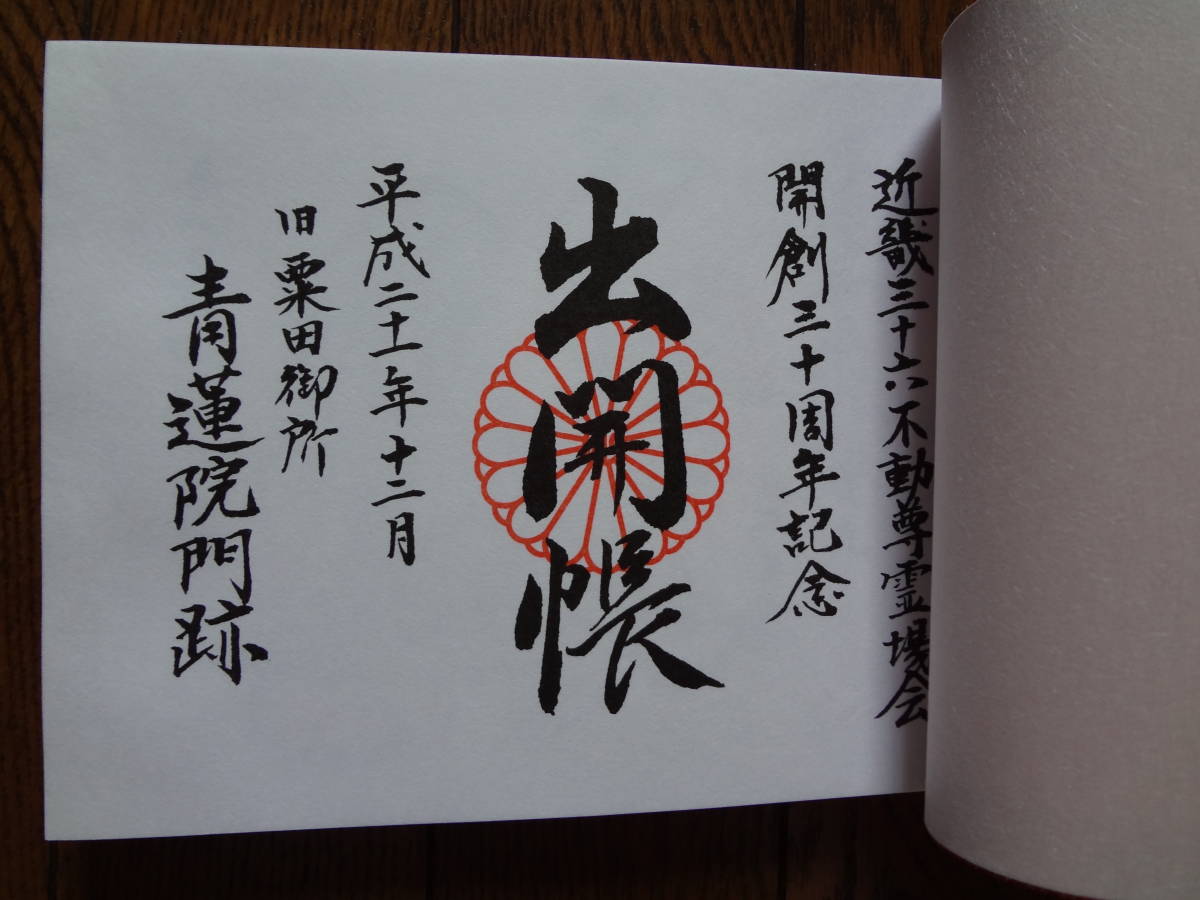 近畿三十六不動尊霊場会
開創三十周年記念
出開帳
平成二十一年十二月
旧粟田御所
青蓮院門跡